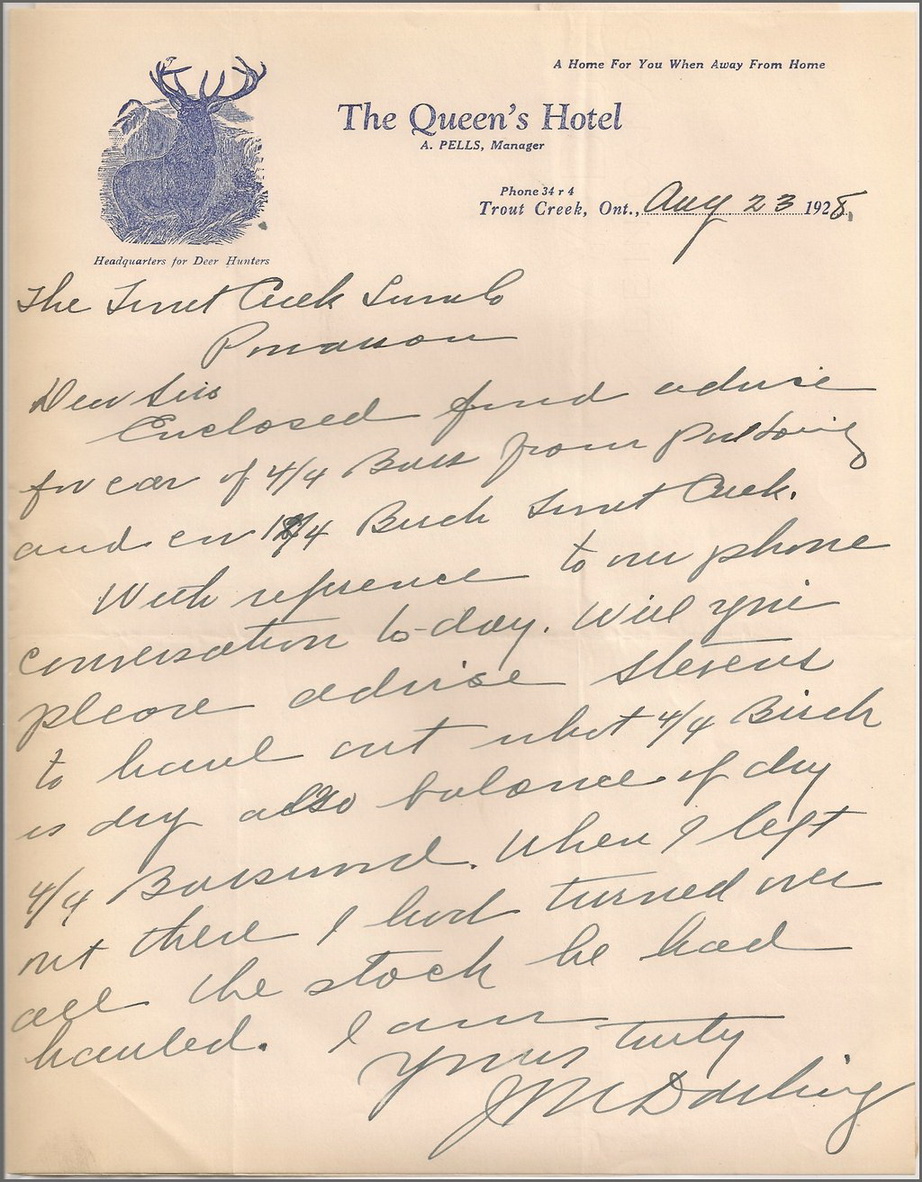 A Home For You When Away From Home
The Queen's Hotel
A. PELLS, Manager
Phone 34 r 4
Trout Creek, Ont., Aug 23 1928.
Headquarters for Deer Hunters
The Trout Creek Lumb
Powassan
Dear Sirs
Enclosed find advise
for car of 4/4 Bass from
and car 12/4 Birch Trout Creek.
With reference to our phone
conversation to-day. Will you
please advise Stevens
to haul out what 4/4 Birch
is dry also balance of dry
4/4 Basswood. When I left
out there I had turned over
all the stock he had
hauled. I am
Yours truly
J M Darling